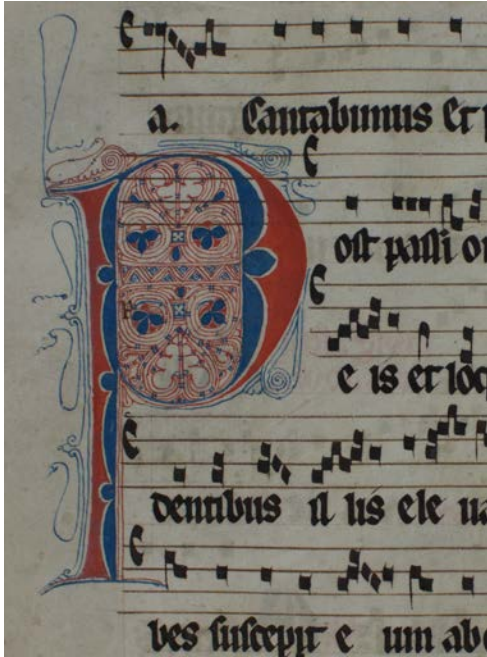 a. Cantabimus Et p
Post passi o
e is et loq
dentibus il lis ele ua
bes suscepit e um ab o